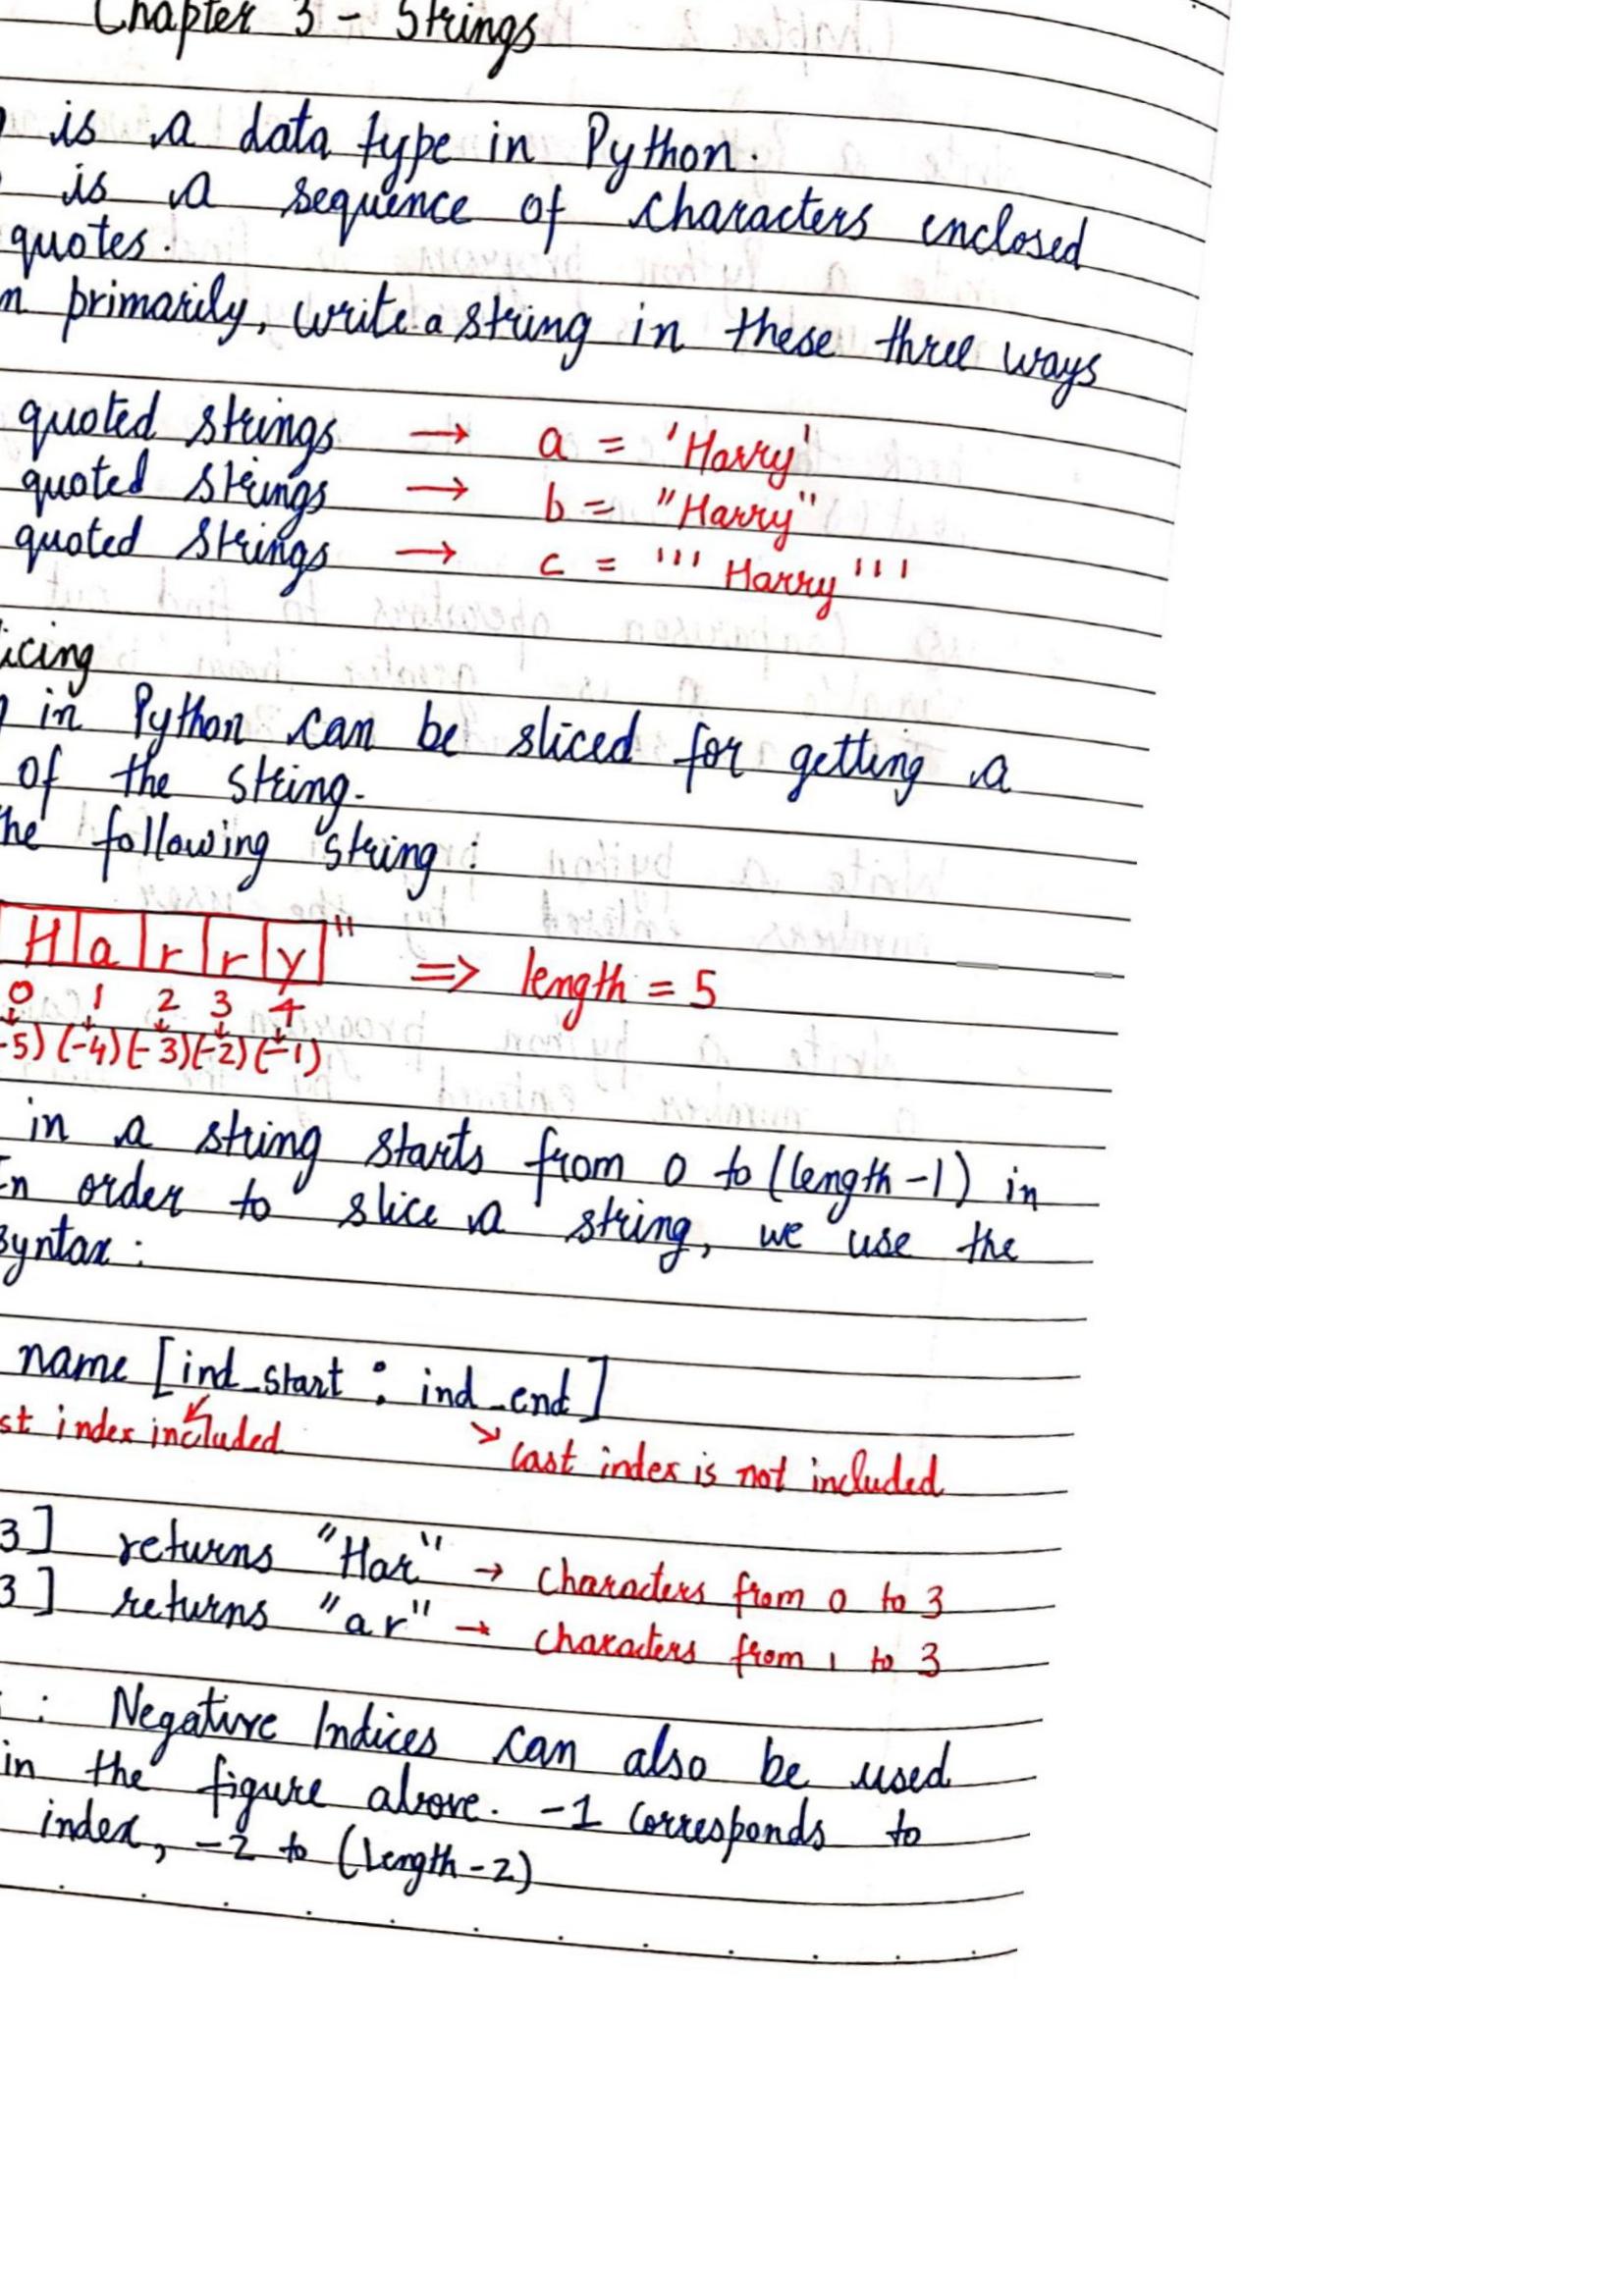 Chapter 3 - Strings
is a data type in Python.
is a sequence of characters enclosed
quotes.
n primarily, write a string in these three ways
quoted strings → a = 'Harry'
quoted strings → b = "Harry"
quoted strings → c = ''' Harry '''
icing
in Python can be sliced for getting a
of the string.
he following string :
H a r r y " => length = 5
0 1 2 3 4
-5) (-4) (-3) (-2) (-1)
in a string starts from 0 to (length-1) in
In order to slice a string, we use the
syntax :
name [ind_start : ind_end]
st index included
last index is not included
3] returns "Har" → characters from 0 to 3
3] returns "ar" → characters from 1 to 3
: Negative Indices can also be used
in the figure above. -1 corresponds to
index, -2 to (length-2)